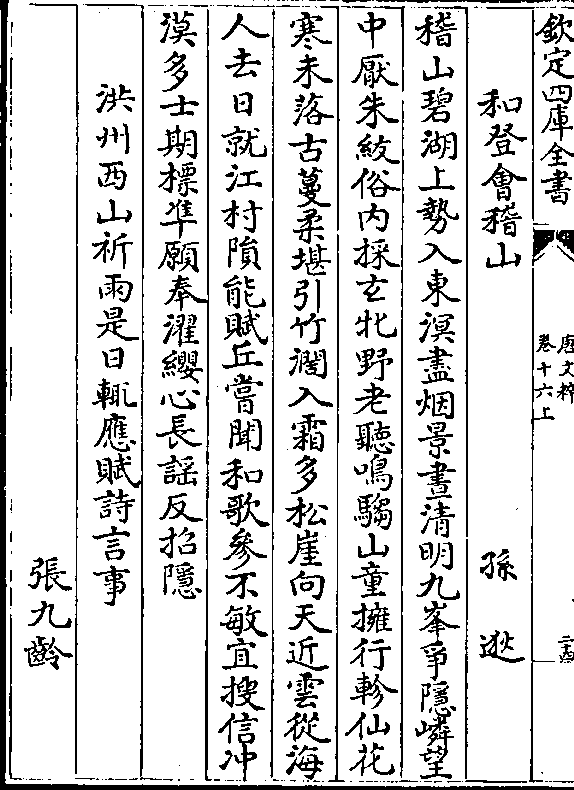 欽定四庫全書
唐文粹
卷十六上
和登會稽山
孫逖
稽山碧湖上勢入東溟盡烟景晝清明九峯爭隱嶙望
中厭朱紱俗内採玄牝野老聽鳴騶山童擁行軫仙花
寒未落古蔓柔堪引竹澗入霜多松崖向天近雲從海
人去日就江村隕能賦丘嘗聞和歌參不敏宜搜信冲
漠多士期標準願奉濯纓心長謡反招隱
洪州西山祈雨是日輒應賦詩言事
張九齡